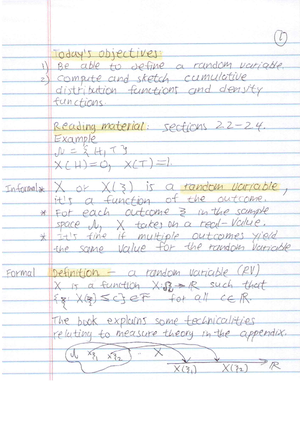 (1)
Today's objectives
1) Be able to define a random variable.
2) Compute and sketch cumulative
distribution functions and density
functions.
Reading material: sections 2.2-2.4.
Example
Ω = {H, T}
X(H)=0, X(T)=1.
Informal * X or X(ξ) is a random variable,
it's a function of the outcome.
* For each outcome ξ in the sample
space Ω, X takes on a real-value.
* It's fine if multiple outcomes yield
the same value for the random variable
Formal Definition - a random variable (RV)
X is a function X:Ω→ℝ such that
{ξ: X(ξ) ≤ c} ∈ F for all c ∈ ℝ.
The book explains some technicalities
relating to measure theory in the appendix.
Ω ξ₁ ξ₂ X
X(ξ₁) X(ξ₂) ℝ